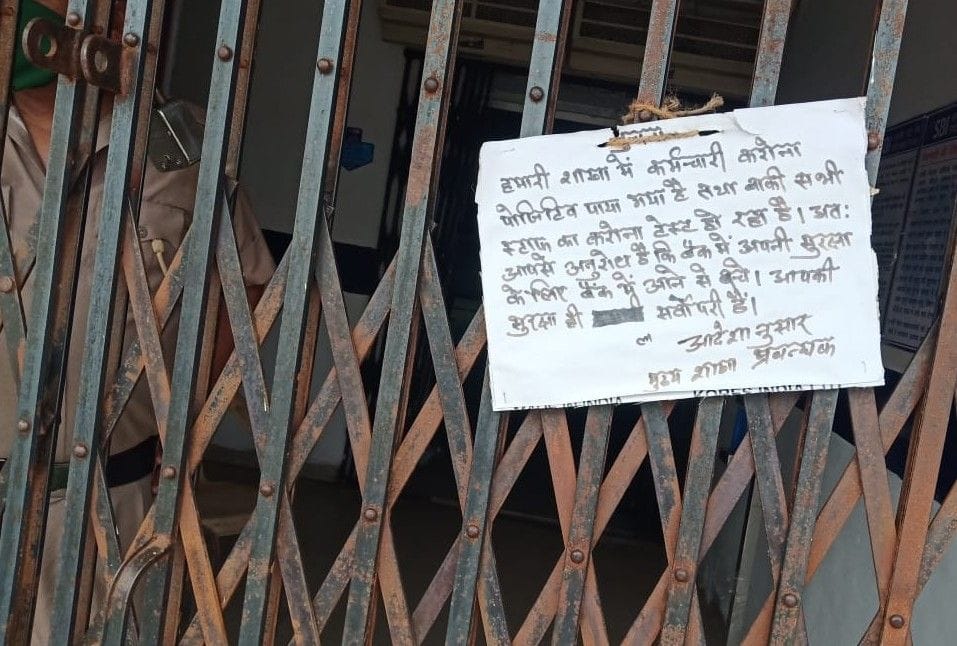 सूचना
हमारी शाखा में कर्मचारी करोना
पोजिटिव पाया गया है तथा बाकी सभी
स्टाफ का करोना टेस्ट हो रहा है। अतः
आपसे अनुरोध है कि बैंक में अपनी सुरक्षा
के लिए बैंक में आने से बचे। आपकी
सुरक्षा ही सर्वोपरी है।
आदेशानुसार
मुख्य शाखा प्रबन्धक
KORES INDIA LTD
SBI